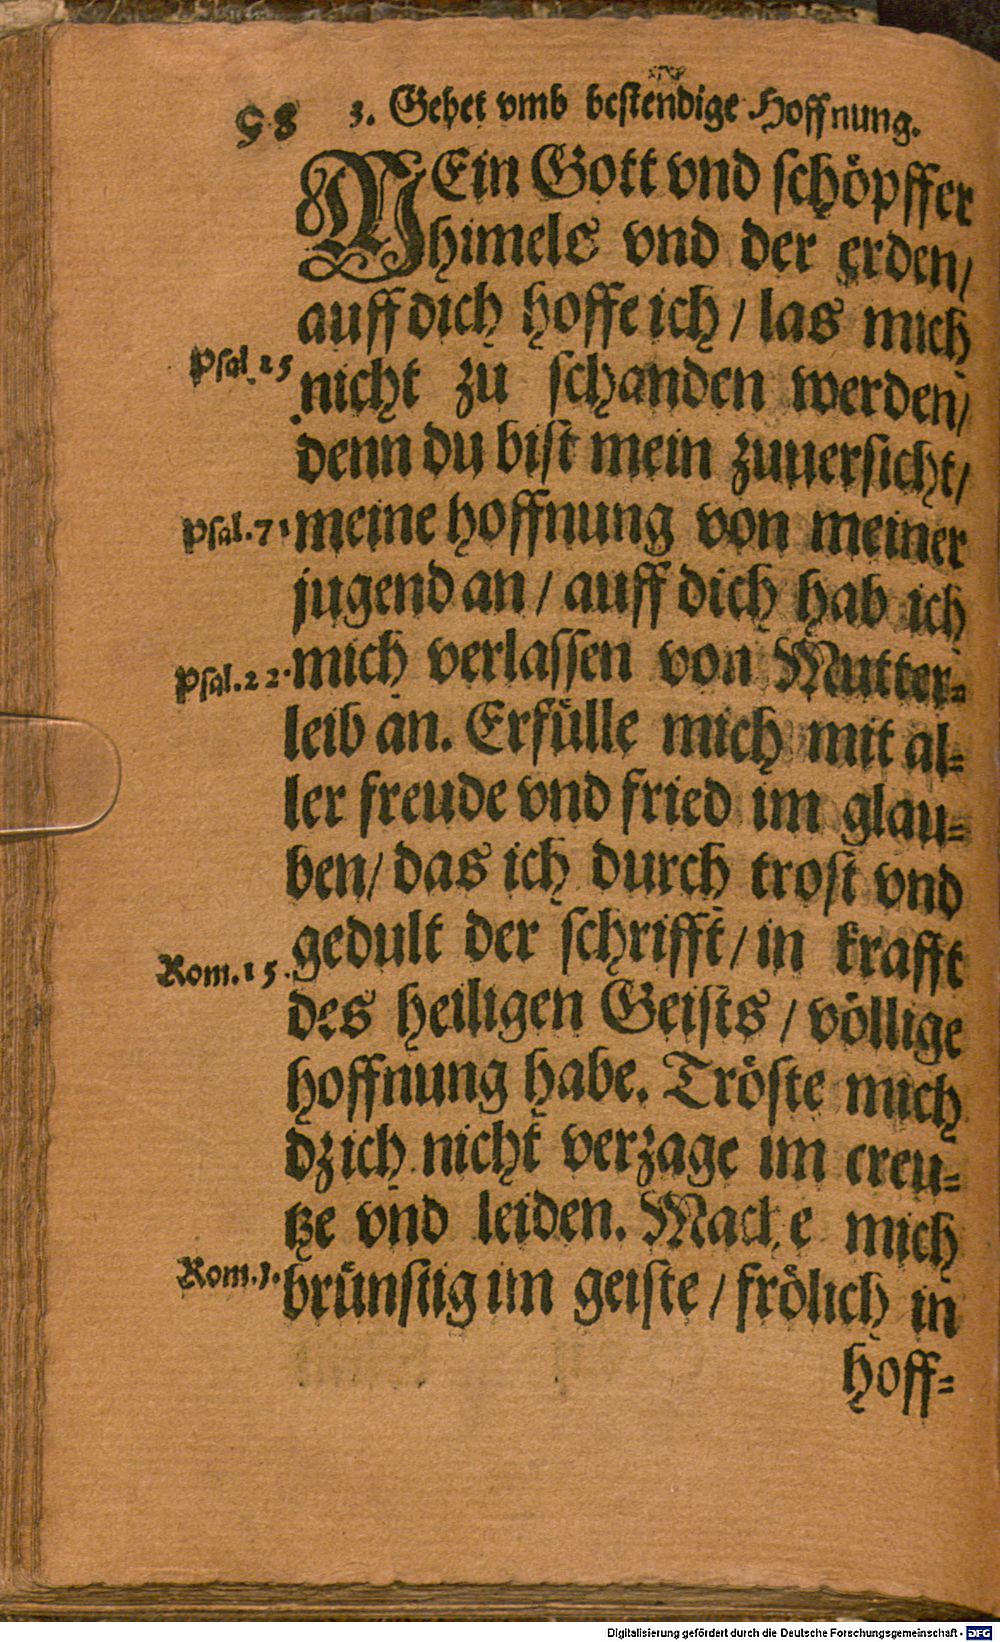 58 3. Gebet vmb bestendige Hoffnung.
MEin Gott vnd schöpffer
himels vnd der erden/
auff dich hoffe ich / las mich
Psal. 25 nicht zu schanden werden/
denn du bist mein zuuersicht/
Psal. 71 meine hoffnung von meiner
jugend an / auff dich hab ich
Psal. 22. mich verlassen von Mutter=
leib an. Erfülle mich mit al=
ler freude vnd fried im glau=
ben/ das ich durch trost vnd
gedult der schrifft / in krafft
Rom. 15. des heiligen Geists / völlige
hoffnung habe. Tröste mich
dz ich nicht verzage im creu=
tze vnd leiden. Mache mich
Rom. 1. brünstig im geiste / frölich in
hoff=
Digitalisierung gefördert durch die Deutsche Forschungsgemeinschaft - DFG